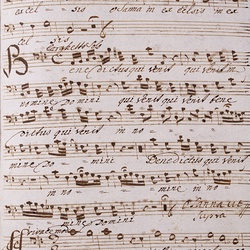 excel - sis osanna in excelsis in ex
cel - sis
Larghetto
Benedictus qui venit qui venit in
nomine Domini qui venit qui venit bene
dictus qui venit in no -
mine Domini Benedictus qui venit
in no - mine in no
mine Domini Osanna ut
supra